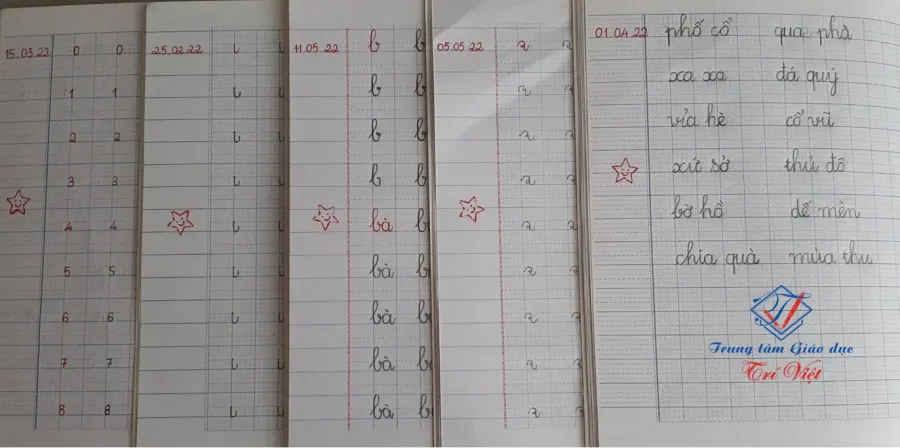 15.03.22 0 0
1 1
2 2
3 3
4 4
5 5
6 6
7 7
8 8
25.02.22 ι ι
ι ι
ι ι
ι ι
ι ι
ι ι
ι ι
ι ι
ι ι
11.05.22 b b
b b
b b
b b
bà b
bà b
bà b
bà b
bà b
05.05.22
01.04.22 phố cổ qua phà
xa xa đá quý
vỉa hè cổ vũ
xứ sở thủ đô
bờ hồ dế mèn
chia quà mùa thu
Trung tâm Giáo dục
Trí Việt